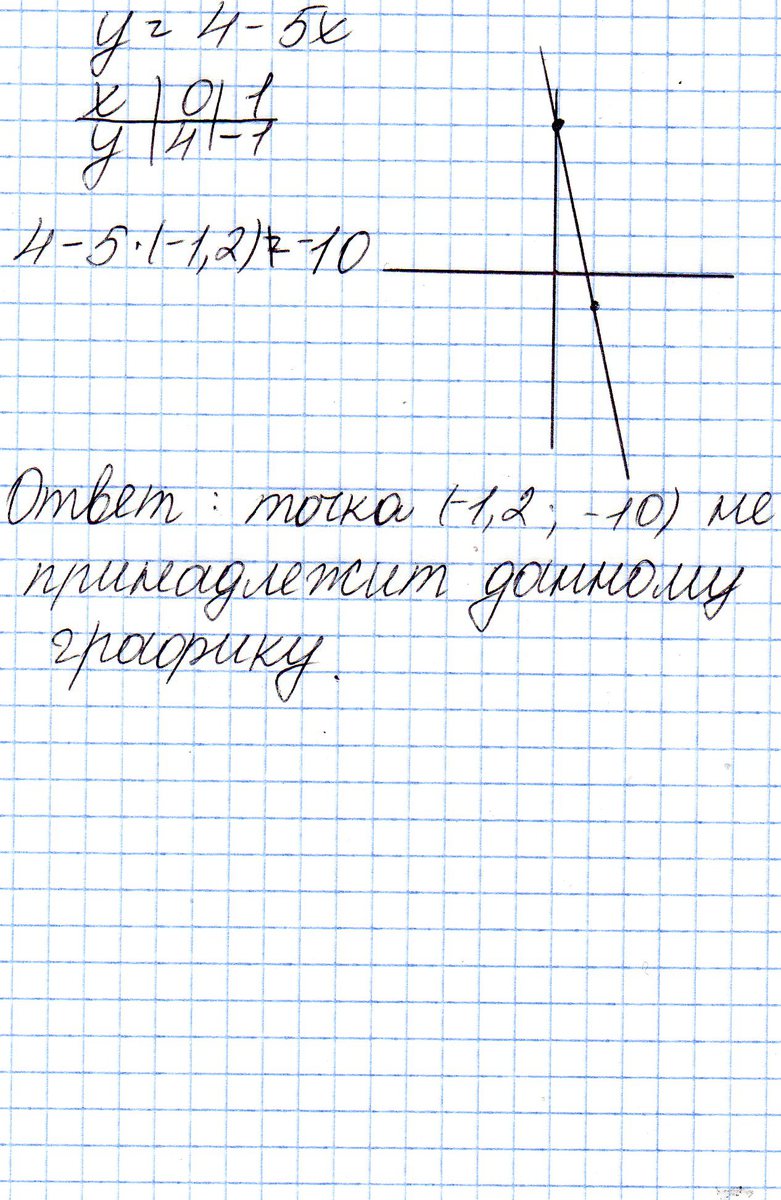 y = 4 - 5x
x | 0 | 1
y | 4 | -1
4 - 5 · (-1,2) ≠ -10
Ответ : точка (-1,2 ; -10) не
принадлежит данному
графику.